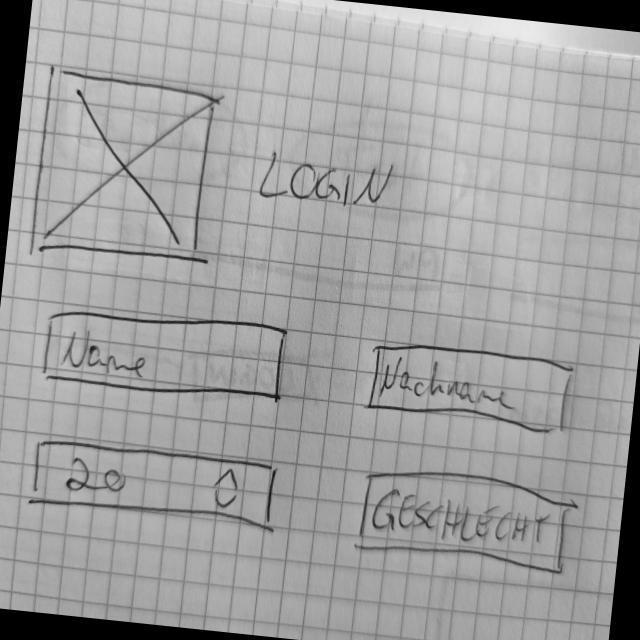 LOGIN
Name
Nachname
20
GESCHLECHT